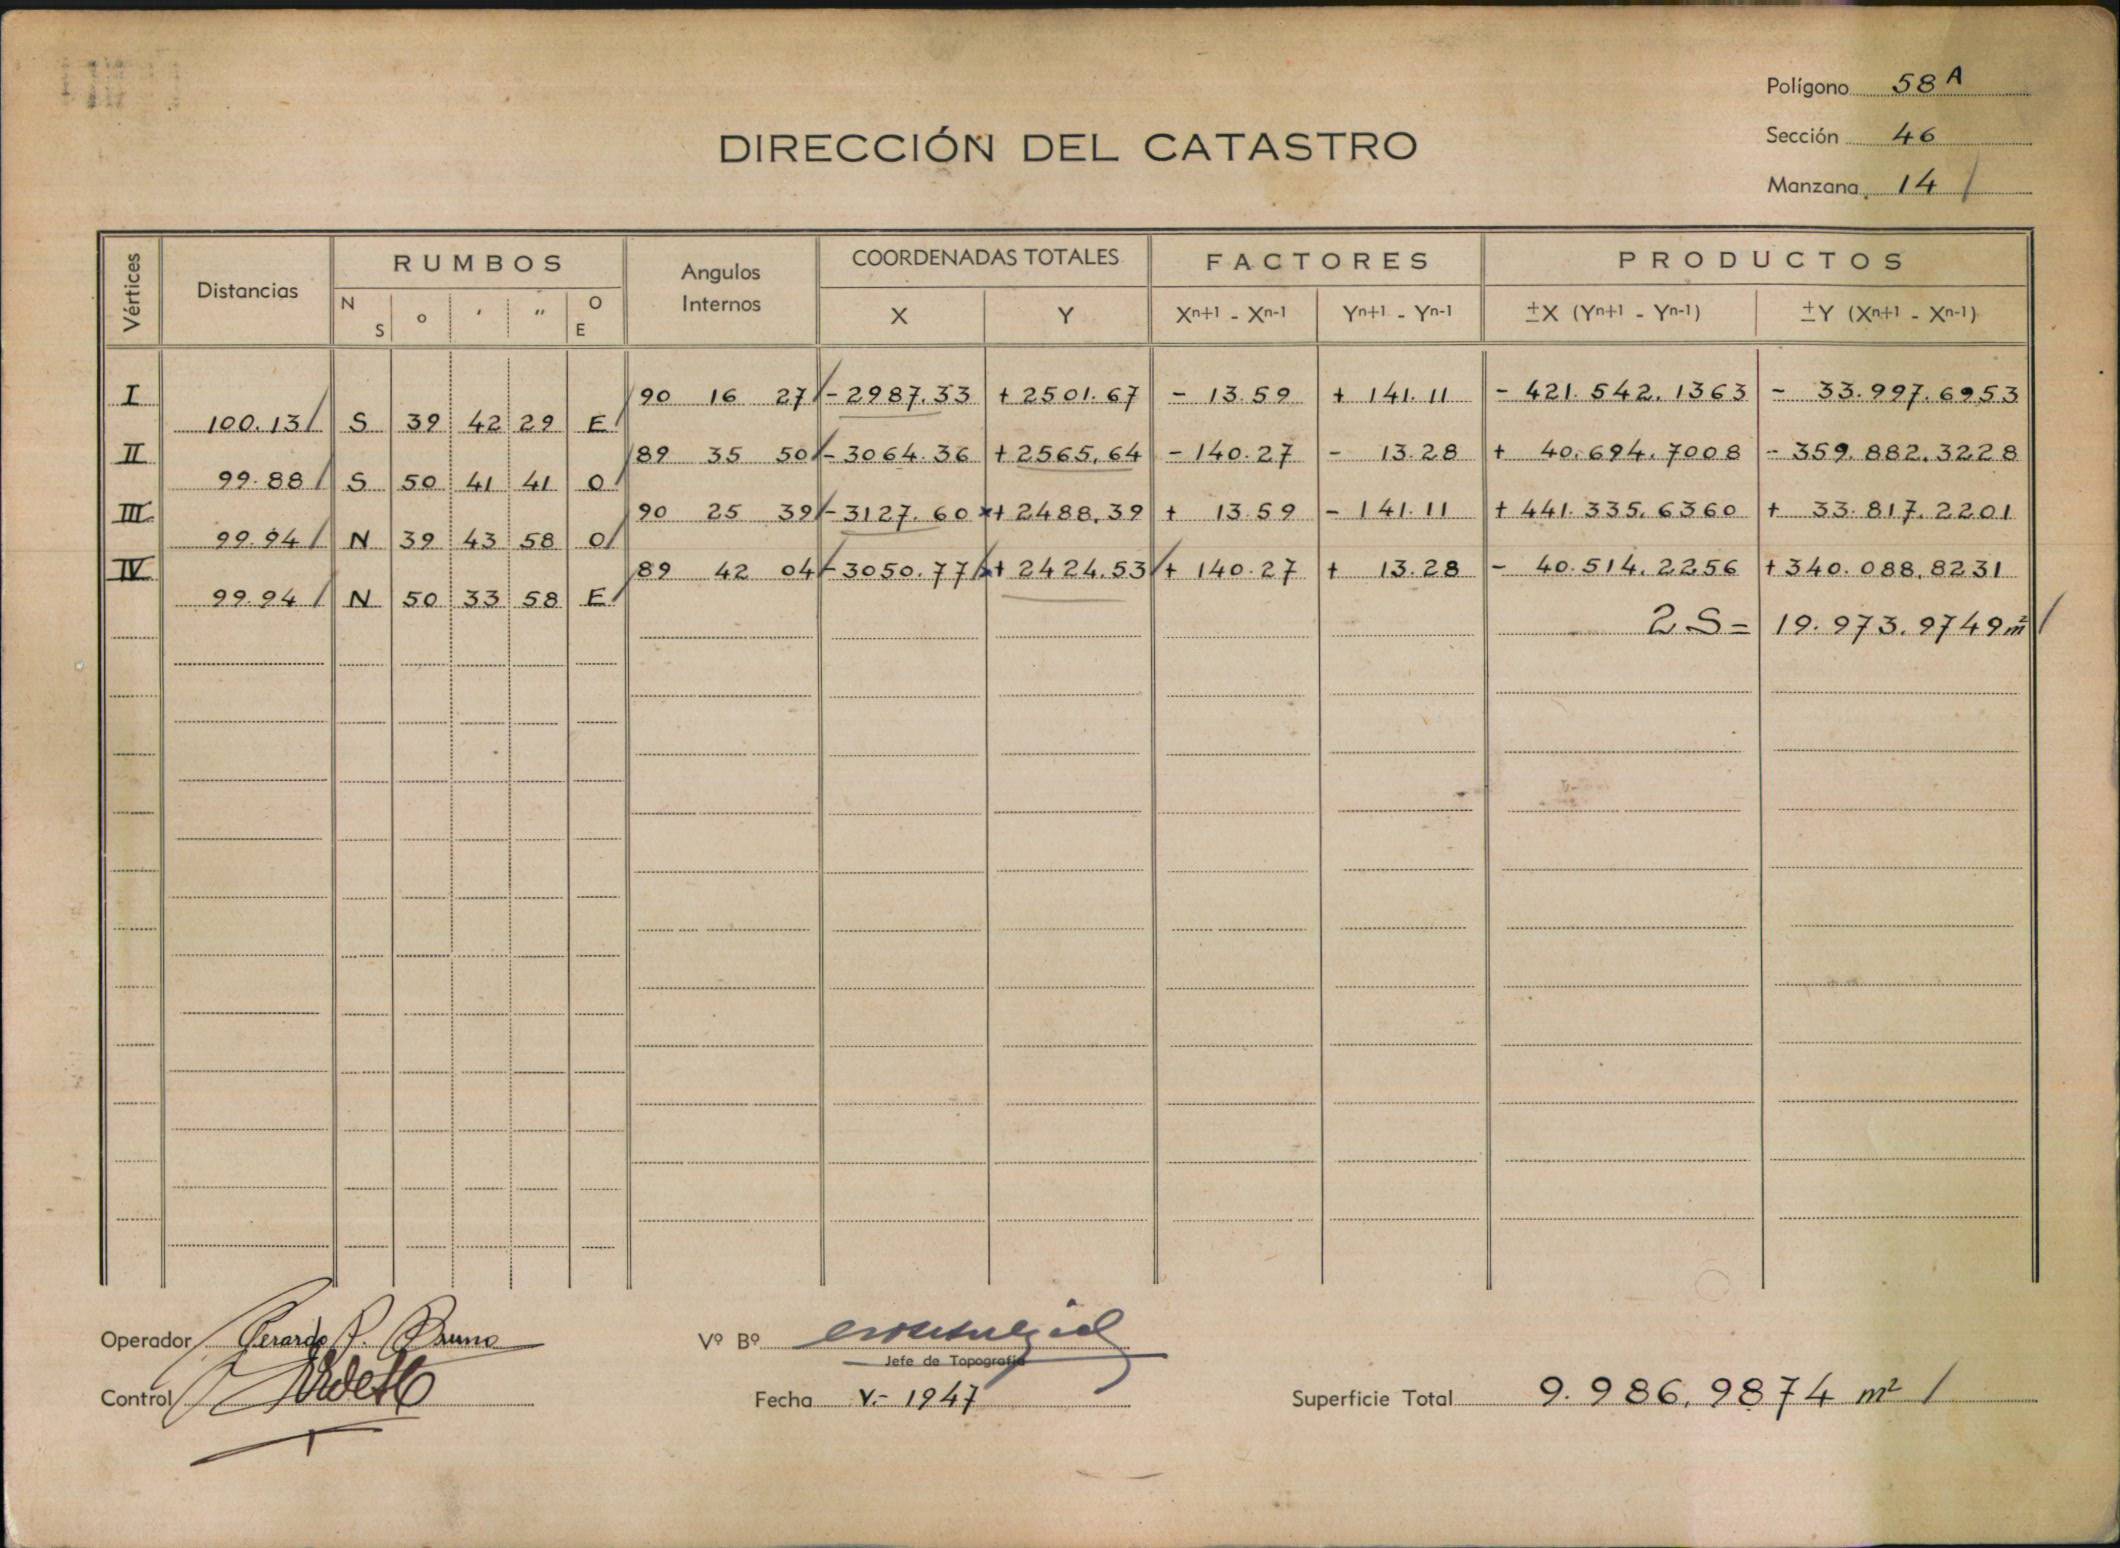 Polígono 58 A
DIRECCIÓN DEL CATASTRO
Sección 46
Manzana 14 /
Vértices Distancias RUMBOS Angulos Internos COORDENADAS TOTALES FACTORES PRODUCTOS
N S o ' " O E X Y Xn+1 - Xn-1 Yn+1 - Yn-1 ±X (Yn+1 - Yn-1) ±Y (Xn+1 - Xn-1)
I 90 16 27 - 2987.33 + 2501.67 - 13.59 + 141.11 - 421.542.1363 - 33.997.6953
100.13 S 39 42 29 E
II 89 35 50 - 3064.36 + 2565.64 - 140.27 - 13.28 + 40.694.7008 - 359.882.3228
99.88 S 50 41 41 O
III 90 25 39 - 3127.60 + 2488.39 + 13.59 - 141.11 + 441.335.6360 + 33.817.2201
99.94 N 39 43 58 O
IV 89 42 04 - 3050.77 + 2424.53 + 140.27 + 13.28 - 40.514.2256 + 340.088.8231
99.94 N 50 33 58 E
2 S = 19.973.9749 m²
Operador Gerardo P. Bruno
Vº Bº
Jefe de Topografía
Control
Fecha V.- 1947
Superficie Total 9.986.9874 m² /